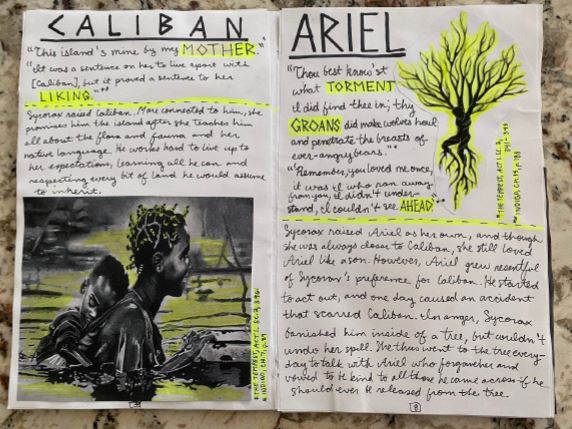 CALIBAN
"This island's mine by my MOTHER."*
"It was a sentence on her to live apart with
[Caliban], but it proved a sentence to her
LIKING."**
Sycorax raised Caliban. More connected to him, she
promises him the island after she teaches him
all about the flora and fauna and her
native language. He works hard to live up to
her expectations, learning all he can and
respecting every bit of land he would assume
to inherit.
*THE TEMPEST, ACT 1, SC. 2,
**INDIGO, CH. 7, p.
ARIEL
"Thou best know'st
what TORMENT
I did find thee in; thy
GROANS did make wolves howl
and penetrate the breasts of
ever-angry bears."*
"Remember, you loved me once,
it was I who ran away
from you, I didn't under-
stand, I couldn't see AHEAD"**
*THE TEMPEST, ACT 1, SC. 2,
**INDIGO, CH. 14, p.
Sycorax raised Ariel as her own, and though
she was always closer to Caliban, she still loved
Ariel like a son. However, Ariel grew resentful
of Sycorax's preference for Caliban. He started
to act out, and one day caused an accident
that scarred Caliban. In anger, Sycorax
banished him inside of a tree, but couldn't
undo her spell. She thus went to the tree every-
day to talk with Ariel who forgave her and
vowed to be kind to all those he came across if he
should ever be released from the tree.
8